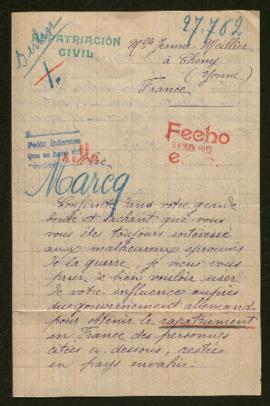 27.762
Berlin
REPATRIACIÓN
CIVIL
Mlle Jeanne Meillier
à Cheny
(Yonne)
France
Fecho
Pedir informes
que se hace
Marcq
Confiante dans votre grande
bonté et sachant que vous
vous êtes toujours intéressé
aux malheureux éprouvés
de la guerre, je viens vous
prier de bien vouloir user
de votre influence auprès
du gouvernement allemand
pour obtenir le rapatriement
en France des personnes
citées ci-dessous, restées
en pays envahi :